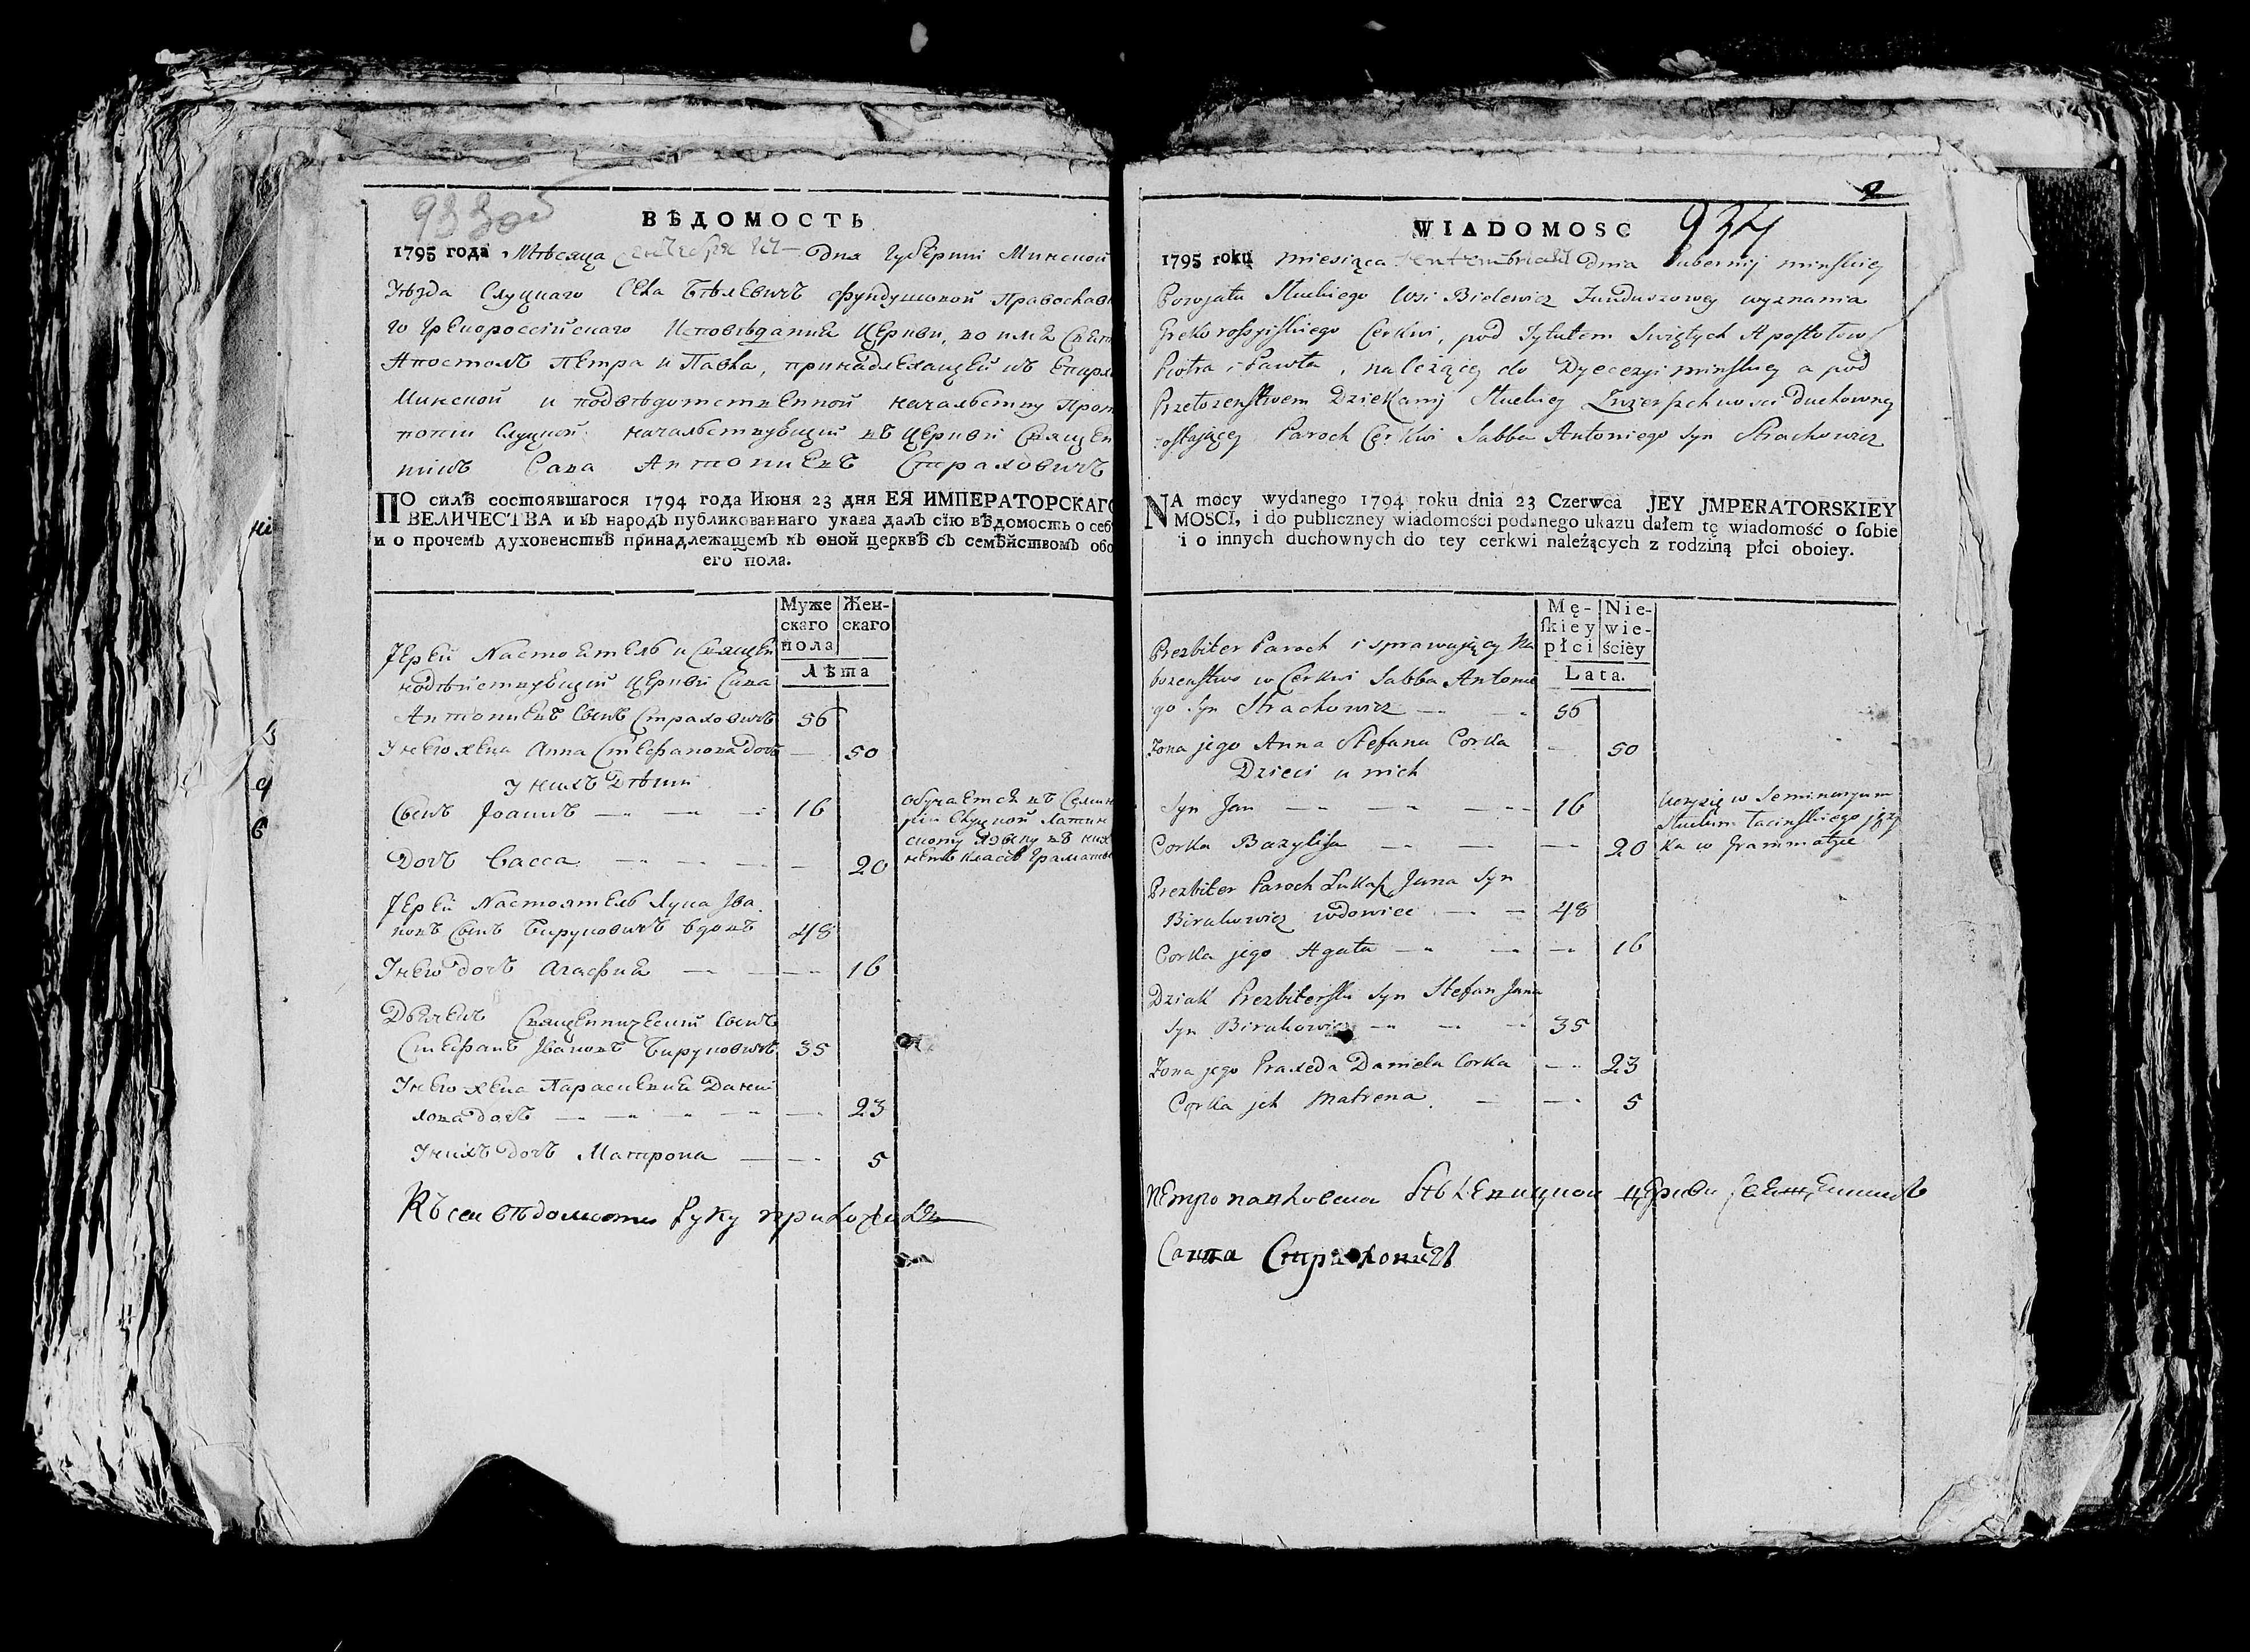 933об
ВѢДОМОСТЬ
1795 года Мѣсяца дня Губерніи Минской
Уѣзда Слуцкаго Села Бѣлевичъ фундушовой Православ
го Грекороссійскаго Исповѣданія Церкви, во имя Свят
Апостолъ Петра и Павла, принадлежащей къ Епарх
Минской и подвѣдомственной начальству Прот
попіи Слуцкой. начальствующій въ Церкви Священ
никъ Сава Антоніевъ Страховичъ
ПО силѣ состоявшагося 1794 года Июня 23 дня ЕЯ ИМПЕРАТОРСКАГО
ВЕЛИЧЕСТВА и въ народъ публикованнаго указа далъ сїю вѣдомость о себѣ
и о прочемъ духовенствѣ принадлежащемъ къ оной церквѣ съ семѣйствомъ обо
его пола.
Муже
скаго
пола
Жен-
скаго
Лѣта
Іерей Настоятель и Священ
нодѣйствующій Церкви Сава
Антоніевъ Сынъ Страховичъ 56
У него жена Анна Стефанова дочь — 50
У нихъ Дѣти
Сынъ Іоаннъ — — — 16
обучается въ Семин
ріи Слуцкой Латин
скому языку въ ниж
немъ класѣ Граматы
Дочь Васса — — — — 20
Іерей Настоятель Лука Ива
новъ Сынъ Бируковичъ вдовъ 48
У него дочь Агафия — — — 16
Дьячекъ Священническій Сынъ
Стефанъ Ивановъ Бируковичъ 35
У него жена Параскевия Дани
лова дочь — — — — — 23
У нихъ дочь Матрона — — 5
Къ сеи вѣдомости руку приложилъ
2
934
WIADOMOSC
1795 roku miesiąca Septembra dnia Gubernij minskiey
Powjatu Sluckiego Wsi Bielewicz Funduszowey wyznania
Greko rossyiskiego Cerkwi, pod Tytułem Swiętych Apostołow
Piotra i Pawła, należącey do Dyecezyi minskiey a pod
Przełozenstwem Dziekanij Sluckiey Zwierzchności Duchowney
zostającey Paroch Cerkwi Sabba Antoniego syn Strachowicz
NA mocy wydanego 1794 roku dnia 23 Czerwca JEY JMPERATORSKIEY
MOSCI, i do publiczney wiadomości podanego ukazu dałem tę wiadomość o sobie
i o innych duchownych do tey cerkwi należących z rodziną płci oboiey.
Mę-
skiey
płci
Nie-
wie-
ściey
Lata.
Prezbiter Paroch i sprawujący Na
bozenstwo w Cerkwi Sabba Antonie
go Syn Strachowicz — — 56
Zona jego Anna Stefana Corka — 50
Dzieci u nich
Syn Jan — — — 16
Uczy się w Seminaryum
Sluckim łacinskiego języ
ka w Grammatyce
Corka Bazylisa — — — 20
Prezbiter Paroch Łukasz Jana Syn
Birukowicz wdowiec — — 48
Corka jego Agata — — — 16
Dziak Prezbiterski Syn Stefan Jana
Syn Birukowicz — — — 35
Zona jego Praxeda Daniela Corka — 23
Corka jch Matrena — — 5
Петро павловски Бѣлевицкои церкви Священникъ
Савва Страховичъ